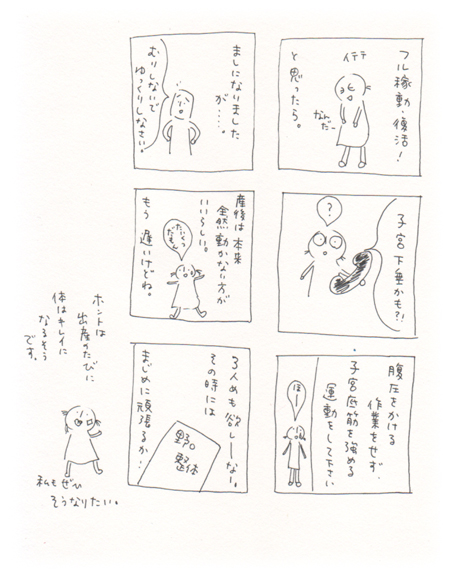 フル稼動・復活！
イテテ
なんだー
と思ったら。
子宮下垂かも？！
？
腹圧をかける
作業をせず、
子宮底筋を強める
運動をして下さい
ほー
ましになりました
が……。
むりしないで
ゆっくりしなさい。
産後は本来
全然動かない方が
いいらしい。
たいくつ
だもん
もう遅いけどね。
3人めも欲しーなー。
その時には
野口
整体
まじめに頑張るか…
ホントは
出産のたびに
体はキレイに
なるそう
です。
私もぜひ
そうなりたい。